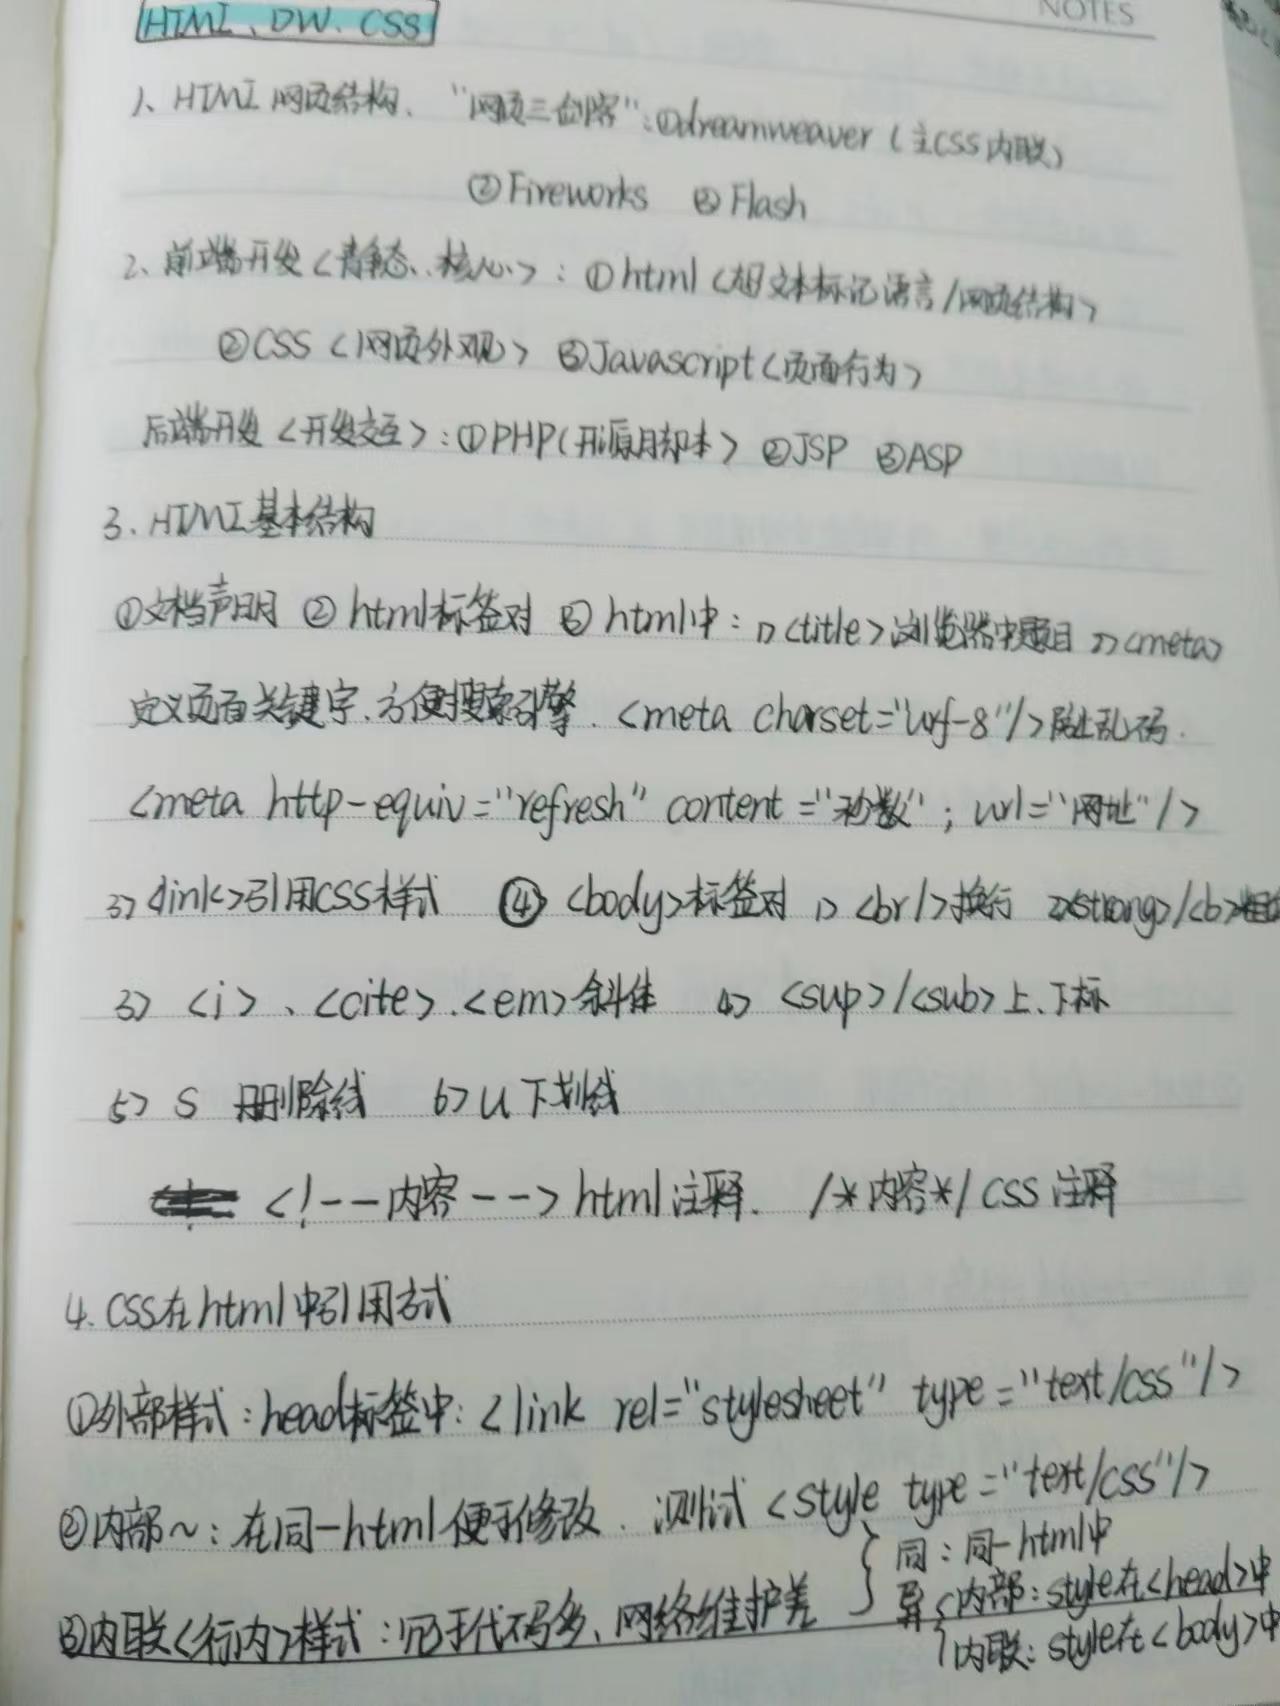 NOTES
HTML、DW、CSS
1、HTML 网页结构.“网页三剑客”:①dreamweaver(主CSS内联)
②Fireworks ③Flash
2、前端开发<静态、核心>:①html<超文本标记语言/网页结构>
②CSS<网页外观> ③Javascript<页面行为>
后端开发<开发交互>:①PHP(开源脚本> ②JSP ③ASP
3.HTML基本结构
①文档声明 ②html标签对 ③html中:1><title>浏览器中题目 2><meta>
定义页面关键字、方便搜索引擎.<meta charset="urf-8"/>防止乱码.
<meta http-equiv="refresh" content="秒数"; url="网址"/>
3><link>引用CSS样式 ④<body>标签对 1><br/>换行 2><strong>/<b>粗
3> <i>、<cite>.<em>斜体 4> <sup>/<sub>上、下标
5> S 删除线 6>u下划线
<!--内容-->html注释. /*内容*/CSS注释
4.CSS在html中引用方式
①外部样式:head标签中:<link rel="stylesheet" type="text/css"/>
②内部~:在同一html便于修改.测试<style type="text/css"/>
③内联<行内>样式:冗于代码多、网络维护差
同:同一html中
异 内部:style在<head>中
内联:style在<body>中